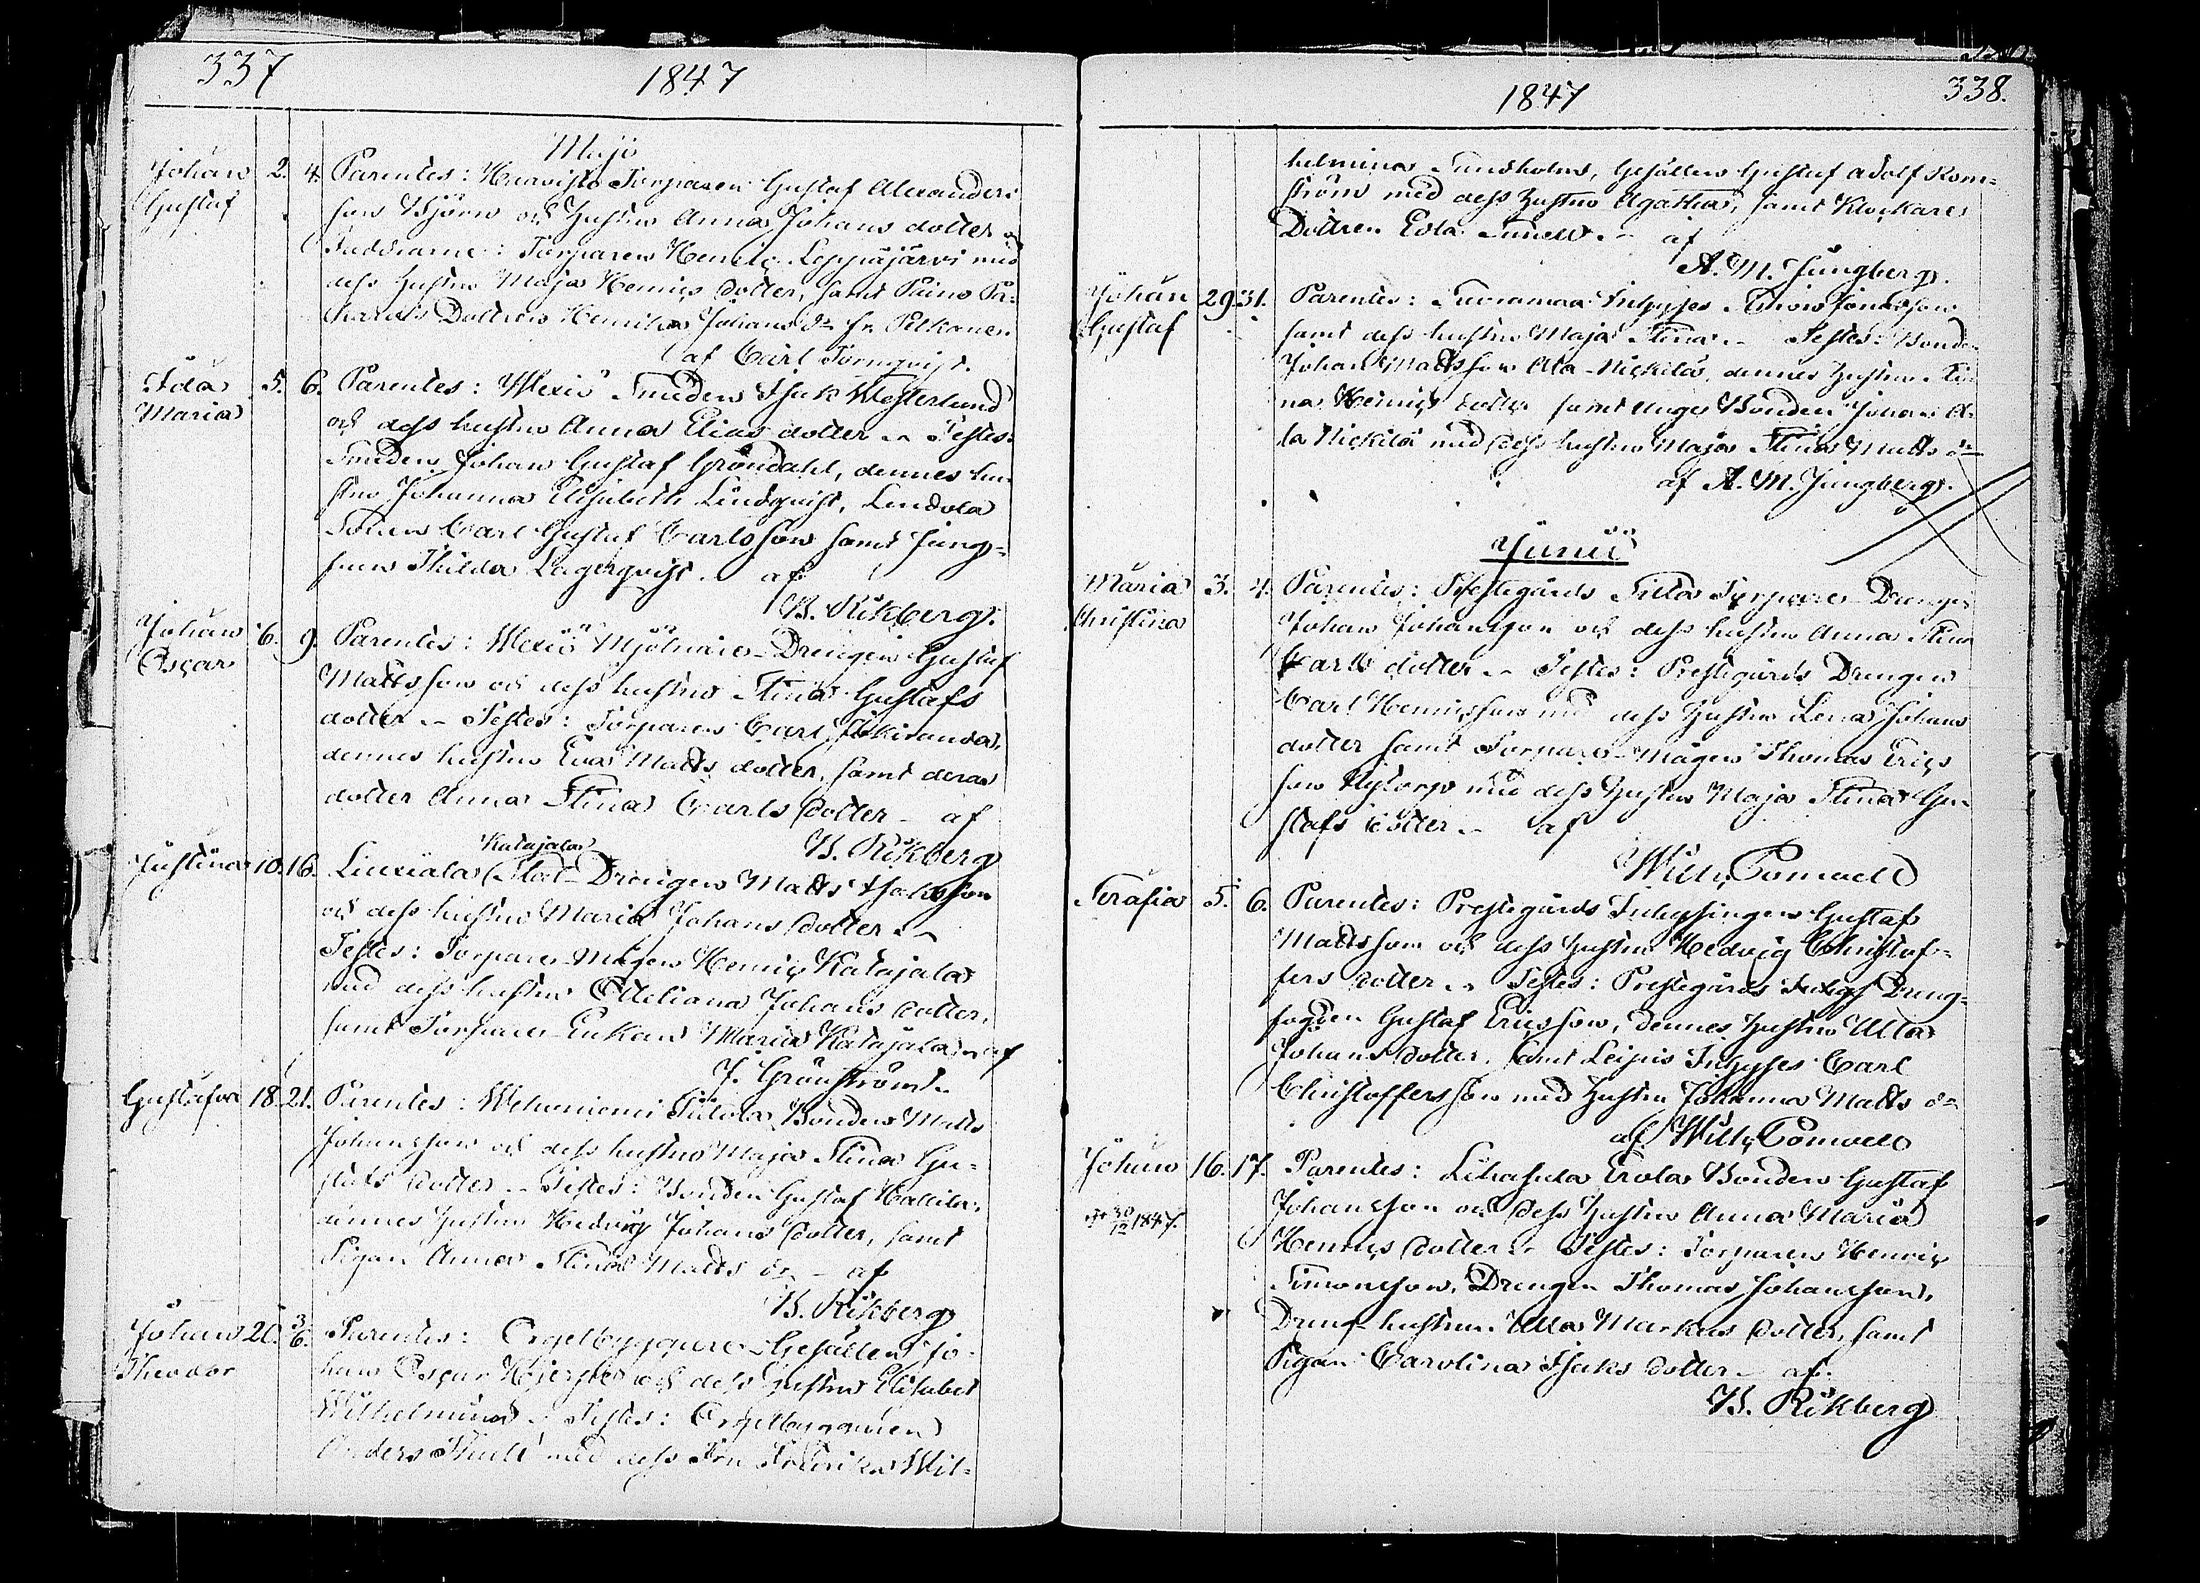 337
1847
Majo
Johan Gustaf 2. 4. Parentes: Torparen Gustaf Alexanders
son Björn och Hustru Anna Johans dotter
Faddrarne: Torparen Henric Leppäjärvi med
dess Hustru Maja Henrics dotter, samt
Dottren Henrika Johans dr fr. Pelkonen
af Carl Törnqvist.
Ida Maria 5. 6. Parentes: Wexiö Smeden Isak Westerlund
och dess hustru Anna Elias dotter Testes:
Smeden Johan Gustaf Gröndahl, dennes hu-
stru Johanna Elisabeth Lindqvist,
Carl Gustaf Carlsson samt Jung-
frun Thilda Lagerqvist. af
B. Rikberg.
Johan Oscar 6. 9. Parentes: Wexiö Mjölnare-Drengen Gustaf
Mattsson och dess hustru Stina Gustafs
dotter Testes: Torparen Carl
dennes hustru Eva Matts dotter, samt deras
dotter Anna Stina Carls dotter af
B. Rikberg
Katajala
Justina 10. 16. Liuxiala Drengen Matts Isaksson
och dess hustru Maria Johans dotter
Testes: Torpare-Mågen Henric Katajala
med dess hustru Johans dotter,
samt Torpare-Enkan Maria Katajala af
J. Grönström.
Gustafva 18. 21. Parentes: Wehoniemi Bonden Matts
Johansson och dess hustru Maja Stina Gu-
stafs dotter Testes: Bonden Gustaf
dennes Hustru Hedvig Johans dotter, samt
Pigan Anna Stina Matts dr af
B. Rikberg
Johan Theodor 20. Parentes: Orgelbyggare-Gesällen Jo-
han Oscar och dess Hustru Elisabet
Wilhelmina Testes: Orgelbyggaren
Anders Thulé med dess Fru Fredrika Wil-
1847
338.
helmina Sundholm, Gesällen Gustaf Adolf Rom-
ström med dess Hustru Agatha, samt Klockare
Dottren Eva af
A. M. Jungberg.
Johan Gustaf 29. 31. Parentes: Inhyses Simon
samt dess hustru Maja Stina Testes: Bonden
Johan Mattsson Ala-Nickilä, dennes Hustru Sti-
na Henrics dotter samt unge Bonden Johan A-
la Nickilä med dess hustru Maja Stina Matts dr
af A. M. Jungberg.
Junii
Maria Christina 3. 4. Parentes: Prestegårds Torpare-Drengen
Johan Johansson och dess hustru Anna Stina
Carls dotter Testes: Prestegårds Drengen
Carl Henricsson med dess Hustru Lena Johans
dotter samt Torpare-Mågen Thomas Erics
son Nytorp med dess Hustru Maja Stina Gu-
stafs dotter af
Wilh. Ponwell
Serafia 5. 6. Parentes: Prestegårds Inhysingen Gustaf
Mattsson och dess Hustru Hedvig Christof-
fers dotter Testes: Prestegårds Dreng-
fogden Gustaf Ericsson, dennes Hustru Ulla
Johans dotter, samt Inhyses Carl
Christoffersson med Hustru Johanna Matts dr
af Wilh. Ponwell
Johan 16. 17. Parentes: Lihasula Erola Bonden Gustaf
Johansson och dess Hustru Anna Maria
30/12 1847.
Henrics dotter Testes: Torparen Henric
Simonsson, Drengen Thomas Johansson,
Dreng-hustrun Ulla Markus dotter, samt
Pigan Carolina Isaks dotter af
B. Rikberg